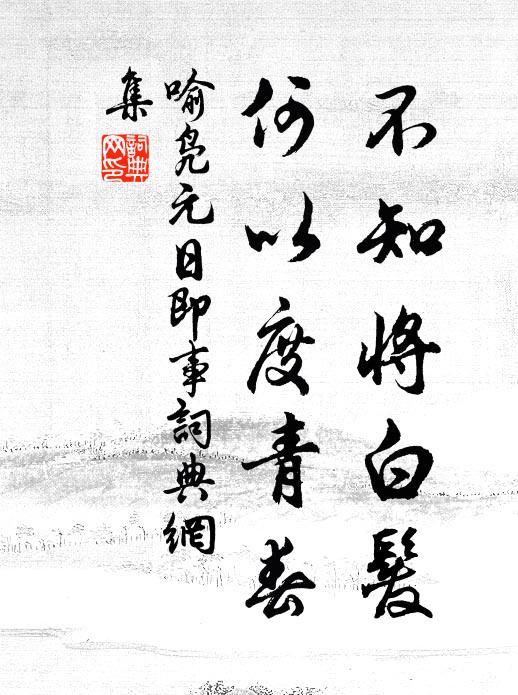 不知將白髮
何以度青春
喻鳧元日即事詞典網
集
詞典
网印